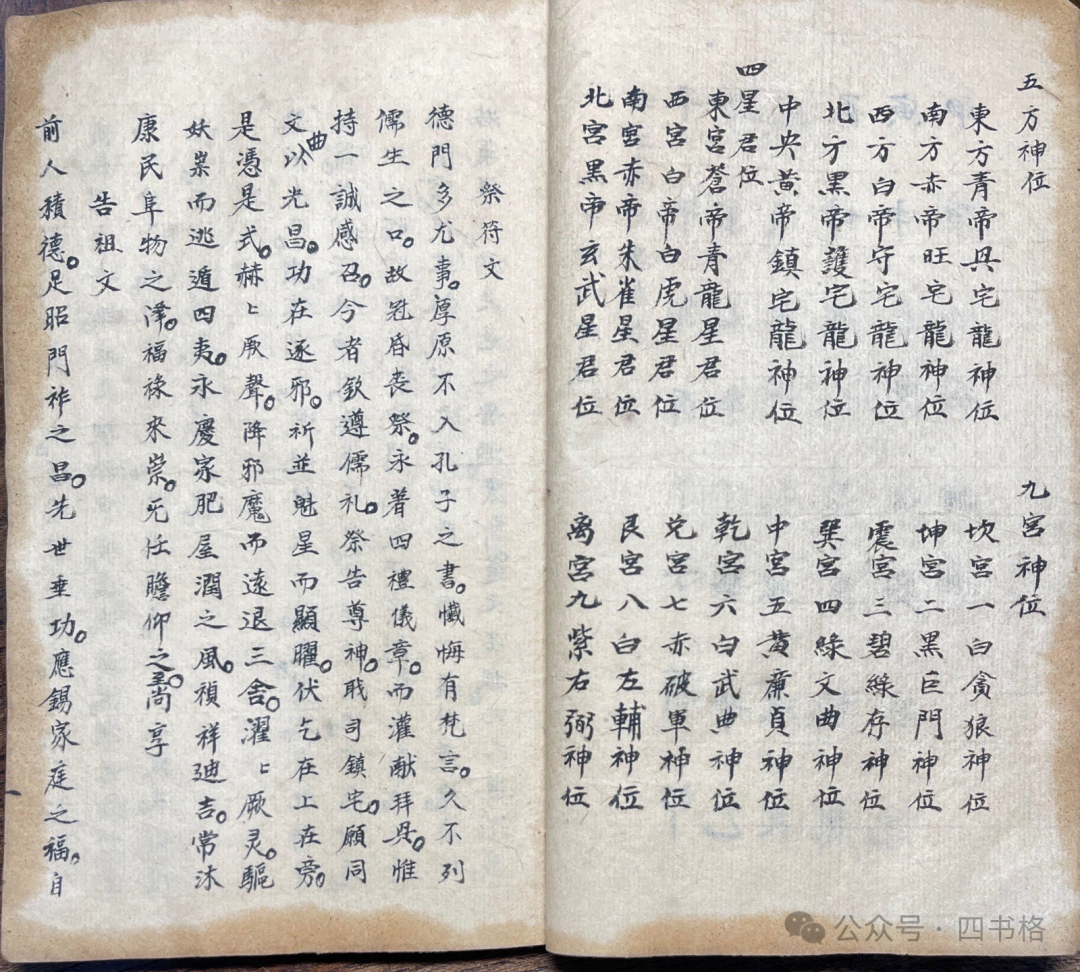 五方神位
東方青帝興宅龍神位
南方赤帝旺宅龍神位
西方白帝守宅龍神位
北方黑帝護宅龍神位
中央黃帝鎮宅龍神位
四星君位
東宮蒼帝青龍星君位
西宮白帝白虎星君位
南宮赤帝朱雀星君位
北宮黑帝玄武星君位
九宮神位
坎宮一白貪狼神位
坤宮二黑巨門神位
震宮三碧綠存神位
巽宮四綠文曲神位
中宮五黃廉貞神位
乾宮六白武曲神位
兌宮七赤破軍神位
艮宮八白左輔神位
离宮九紫右弼神位
祭符文
德門多尤事。厚原不入孔子之書。懺悔有梵言。久不列
儒生之口。故冠昏丧祭。永著四禮儀章。而灌献拜具。惟
持一誠感召。今者欽遵儒礼。祭告尊神。職司鎮宅。願同
文曲以光昌。功在逐邪。祈並魁星而顯曜。伏乞在上在旁。
是憑是式。赫〻厥聲。降邪魔而遠退三舍。濯〻厥灵。驅
妖祟而逃遁四夷。永慶家肥屋潤之風。禎祥迪吉。常沐
康民阜物之澤。福祿來崇。无任瞻仰之至。尚享
告祖文
前人積德。足昭門祚之昌。先世垂功。應錫家庭之福。自
公众号·四书格